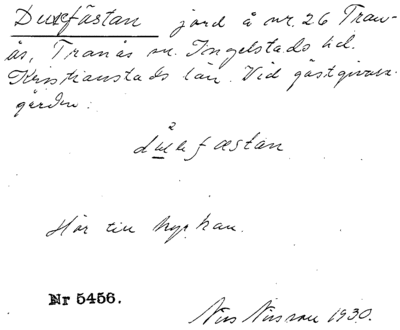 Duxefästan jord å nr. 26 Tran-
ås, Tranås sn. Ingelstads hd.
Kristianstads län. Vid gästgivare-
gården:
fæstan
Hör till
Nr 5456.
Nils Nilsson 1930.